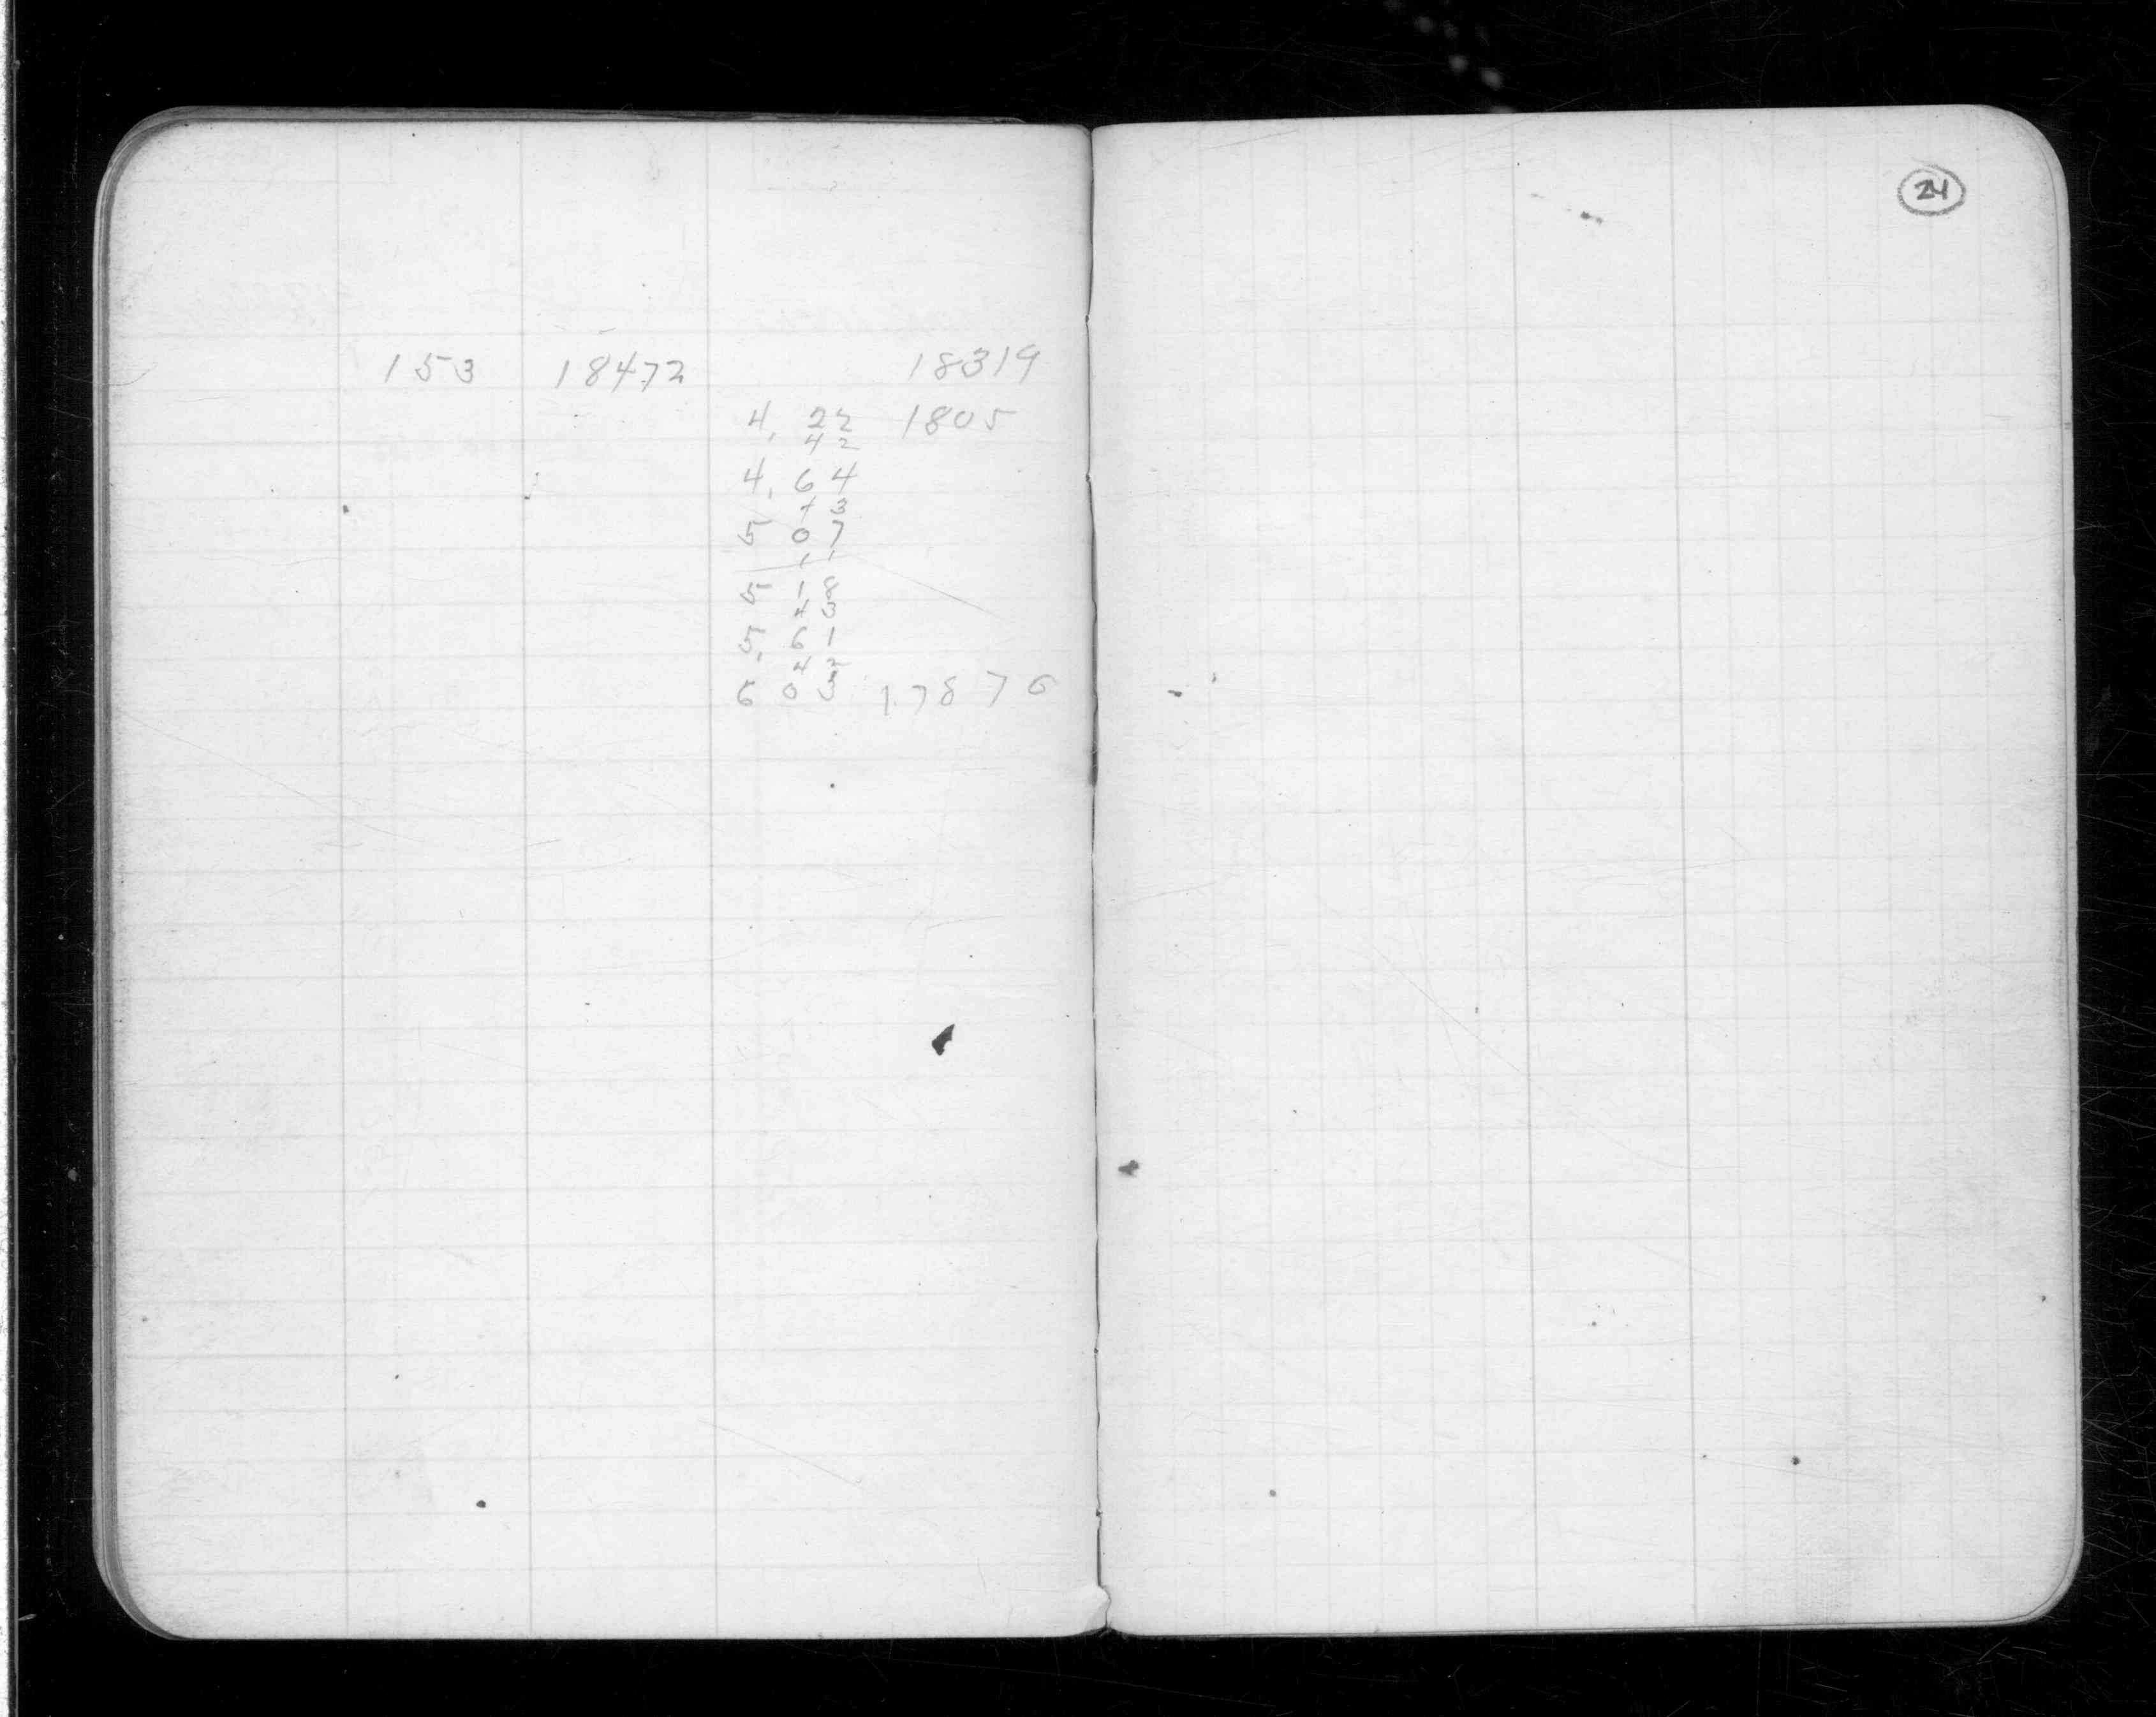 153 18472 18319
4, 22 1805
42
4, 64
43
5 07
11
5 18
43
5, 61
42
6 03 17876
24